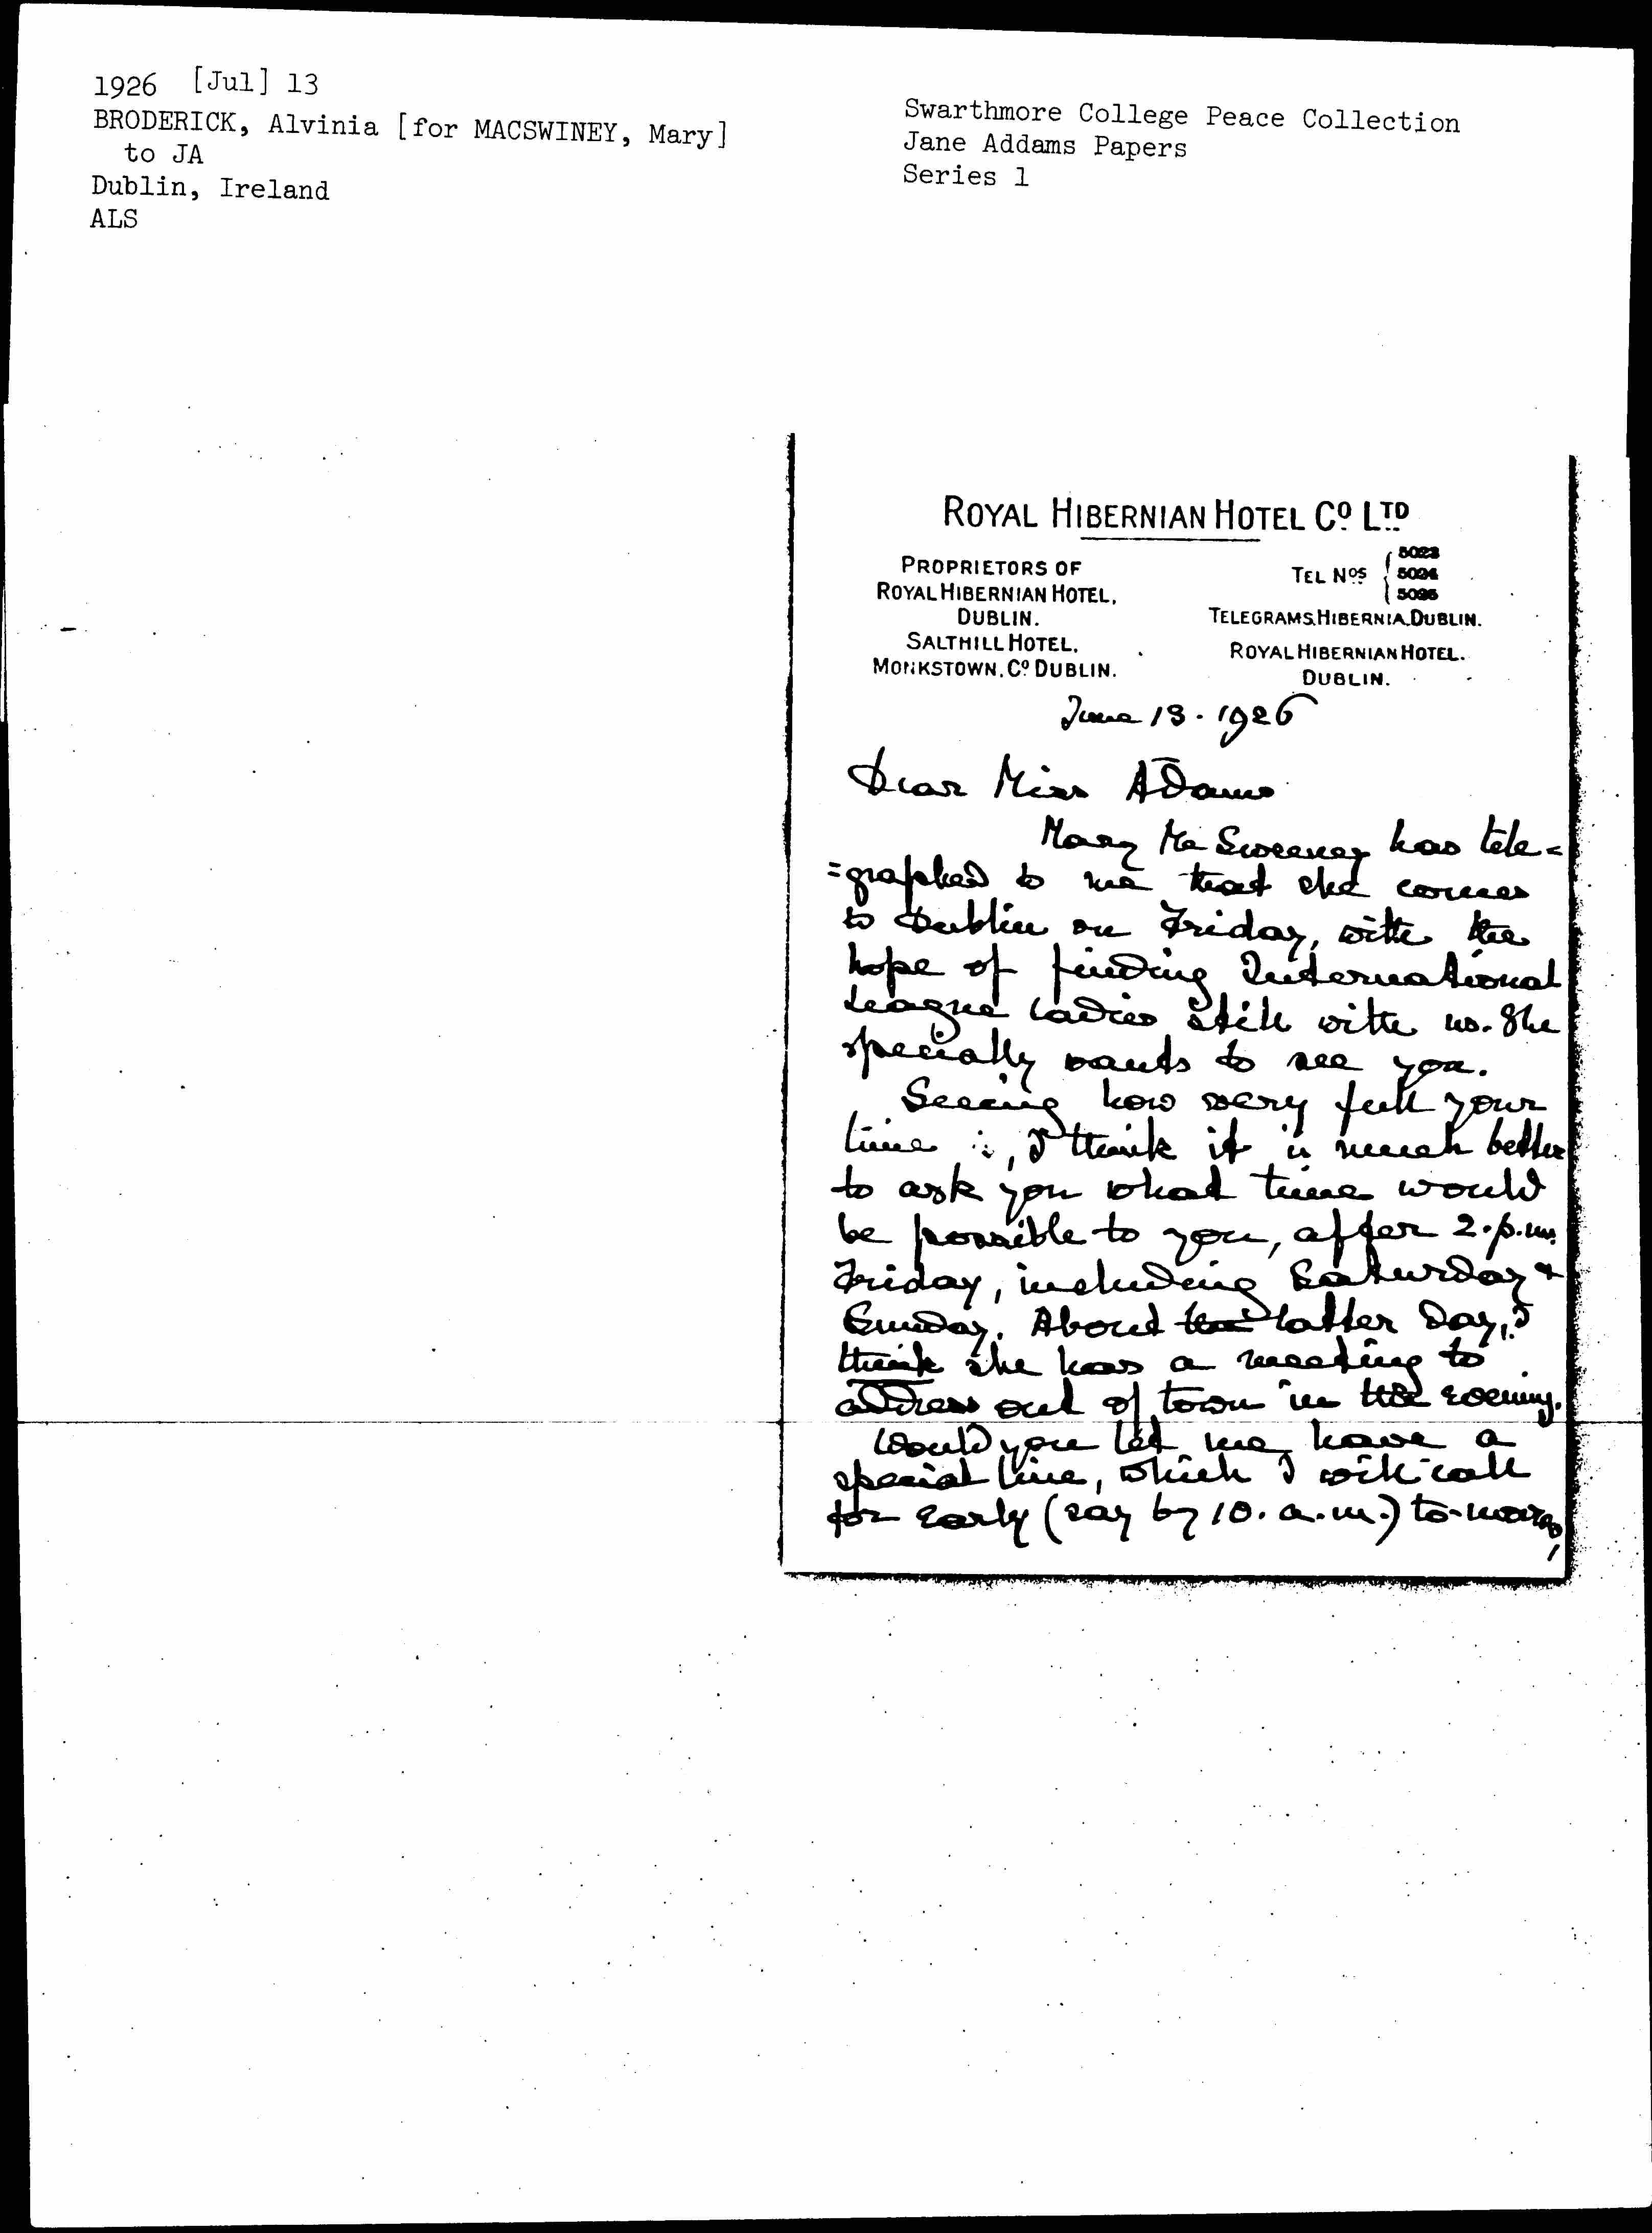 1926 [Jul] 13
BRODERICK, Alvinia [for MACSWINEY, Mary]
to JA
Dublin, Ireland
ALS
Swarthmore College Peace Collection
Jane Addams Papers
Series 1
ROYAL HIBERNIAN HOTEL Co LTD
PROPRIETORS OF
ROYAL HIBERNIAN HOTEL,
DUBLIN.
SALTHILL HOTEL,
MONKSTOWN. Co DUBLIN.
TEL Nos 5023
5024
5025
TELEGRAMS, HIBERNIA, DUBLIN.
ROYAL HIBERNIAN HOTEL.
DUBLIN.
June 13 - 1926
Dear Miss Adams
Mary McSweeney has tele=
=graphed to me that she comes
to Dublin on Friday, with the
hope of finding International
League ladies still with us. She
specially wants to see you.
Seeing how very full your
time is, I think it is much better
to ask you what time would
be possible to you, after 2.p.m.
Friday, including Saturday &
Sunday. About the latter day, I
think she has a meeting to
address out of town in the evening.
Would you let me have a
special line, which I will call
for early (say by 10. a.m.) to-morrow,